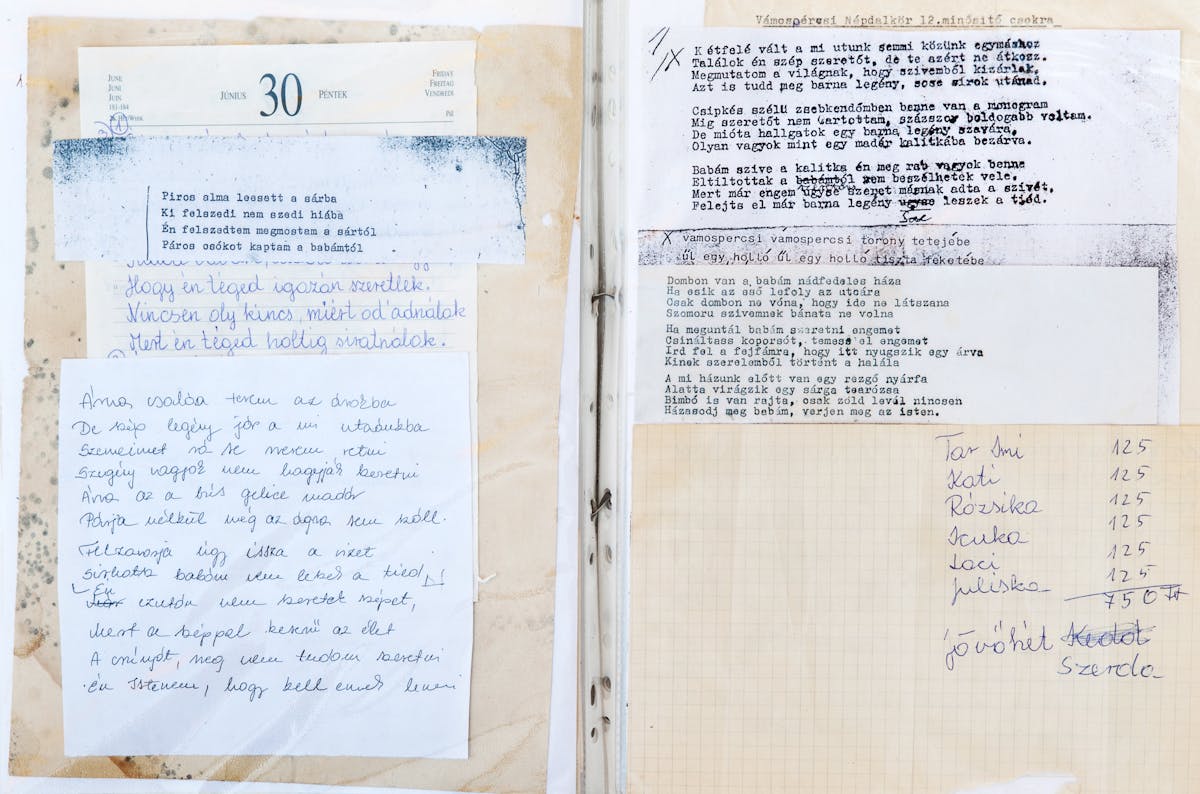 JUNE
JUNI
JUIN
181-184
26. Hét/Week
JÚNIUS 30 PÉNTEK
FRIDAY
FREITAG
VENDREDI
Pál
Piros alma leesett a sárba
Ki felszedi nem szedi hiába
Én felszedtem megmostam a sártól
Páros csókot kaptam a babámtól
Hogy én téged igazán szeretlek.
Nincsen oly kincs, miért od'adnálak
Mert én téged holtig siratnálak.
Árva csalán terem az árokba
De szép legény jár a mi utcánkba
Szemeimet rá se merem vetni
Szegény vagyok nem hagyják szeretni
Árva az a bús gelice madár
Párja nélkül még az ágra sem száll.
Felzavarja úgy issza a vizet
Sírhatsz babám nem leszek a tied
Én
ezután nem szeretek szépet,
Mert a széppel keserű az élet
A csúnyát, meg nem tudom szeretni
Én Istenem, hogy kell ennek lenni
Vámospércsi Népdalkör 12.minősitő csokra
1/x
Kétfelé vált a mi utunk semmi közünk egymáshoz
Találok én szép szeretőt, de te azért ne átkozz.
Megmutatom a világnak, hogy szivemből kizárlak.
Azt is tudd meg barna legény, sose sirok utánad.
Csipkés szélü zsebkendőmben benne van a monogram
Mig szeretőt nem tartottam, százszor boldogabb voltam.
De mióta hallgatok egy barna legény szavára,
Olyan vagyok mint egy madár kalitkába bezárva.
Babám szive a kalitka én meg rab vagyok benne
Eltiltottak a babámtól nem beszélhetek vele.
Mert már engem ugyse szeret másnak adta a szivét.
Felejts el már barna legény ugyse leszek a tiéd.
x vámospércsi vámospércsi torony tetejébe
ül egy holló ül egy holló tiszta feketébe
Dombon van a babám nádfedeles háza
Ha esik az eső lefoly az utcára
Csak dombon ne vóna, hogy ide ne látszana
Szomoru szivemnek bánata ne volna
Ha meguntál babám szeretni engemet
Csináltass koporsót, temess'el engemet
Ird fel a fejfámra, hogy itt nyugszik egy árva
Kinek szerelemből történt a halála
A mi házunk előtt van egy rezgő nyárfa
Alatta virágzik egy sárga tearózsa
Bimbó is van rajta, csak zöld levál nincsen
Házasodj meg babám, verjen meg az isten.
Tar Imi 125
Kati 125
Rózsika 125
Icuka 125
Laci 125
Juliska 125
750 Ft
jövőhét Kedd
Szerda